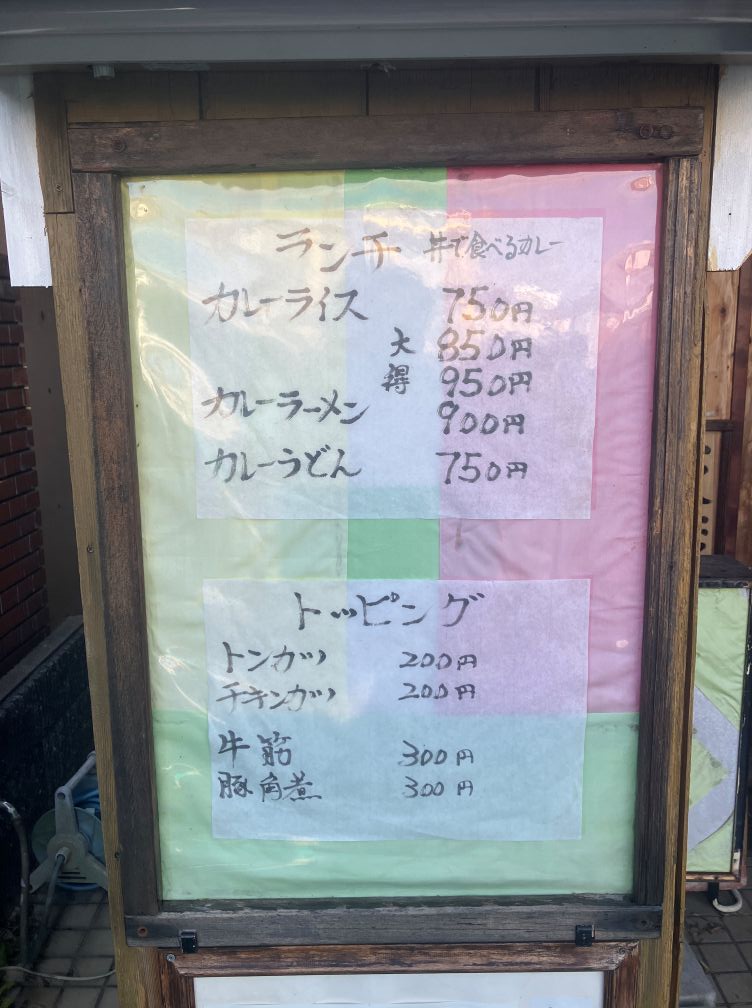 ランチ 丼で食べるカレー
カレーライス 750円
大 850円
得 950円
カレーラーメン 900円
カレーうどん 750円
トッピング
トンカツ 200円
チキンカツ 200円
牛筋 300円
豚角煮 300円